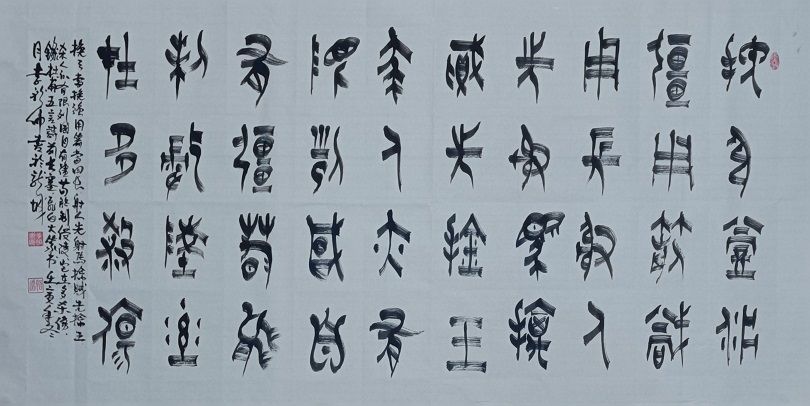 挽弓當挽
彊用箭當
用長射人
先射馬擒
賊先擒王
殺人亦有
限列國自
有疆苟能
制侵陵豈
在多殺傷
挽弓當挽強用箭當用長射人先射馬擒賊先擒王
殺人亦有限列國自有疆苟能制侵陵豈在多殺傷
錄杜甫五言詩前出塞